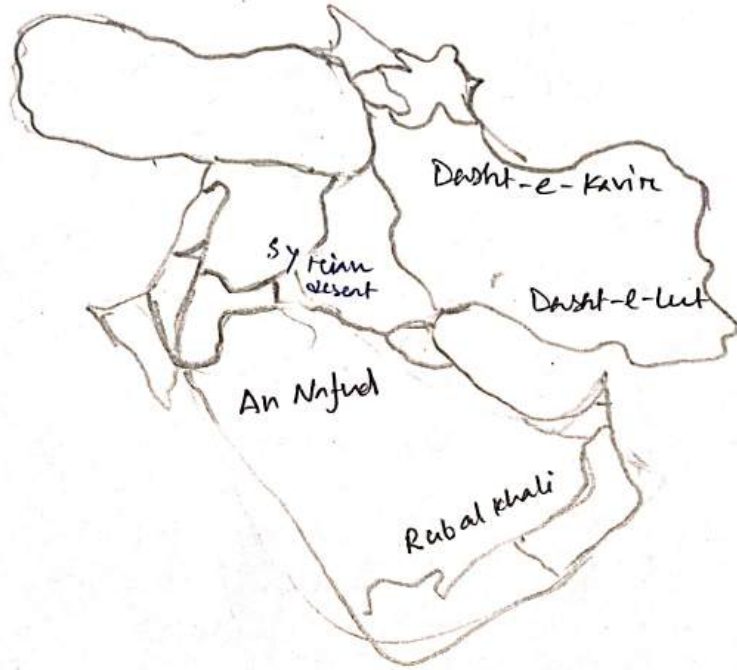 Dasht-e-Kavir
Syrian
desert
Dasht-e-Lut
An Nafud
Rub al Khali